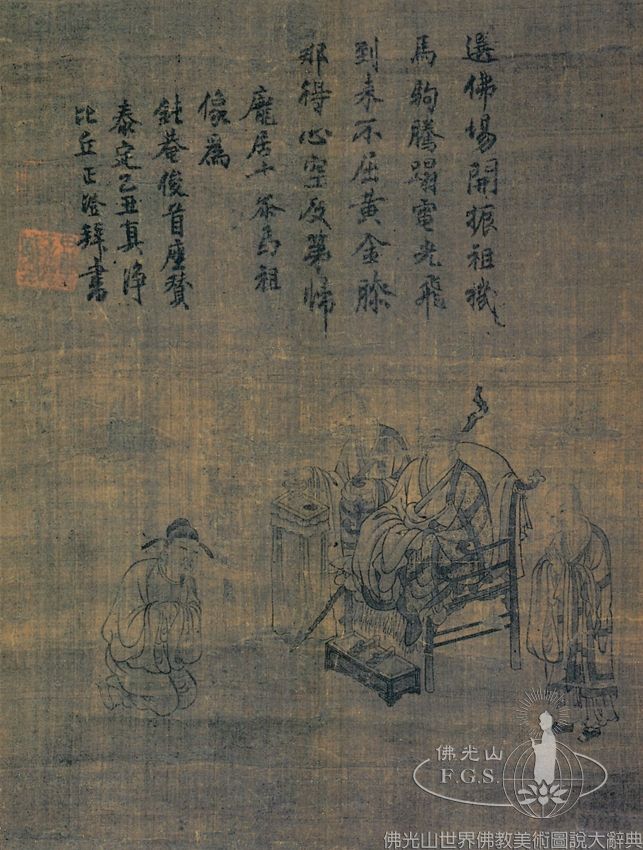 選佛場開振祖機
馬駒騰蹋電光飛
到来不屈黄金膝
那得心空及第帰
龐居士参馬祖
像為
鈍菴俊首座賛
泰定乙丑真浄
比丘正澄拜書
佛光山
F.G.S.
佛光山世界佛教美術圖說大辭典